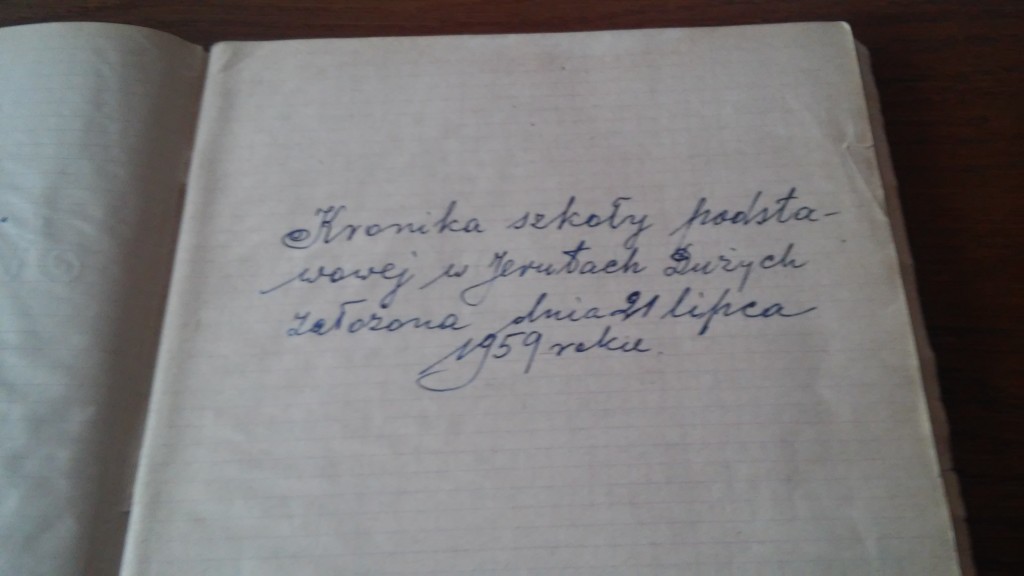 Kronika szkoły podsta-
wowej w Jerutach Dużych
założona dnia 21 lipca
1959 roku.